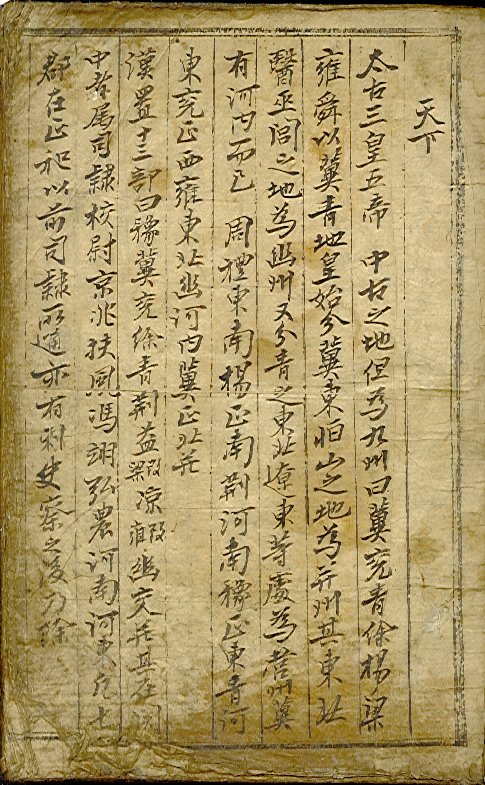 天下
太古三皇五帝 中古之地但為九州曰冀兗青徐楊梁
雍舜以冀青地皇始分冀東恒山之地為并州其東北
醫巫閭之地為幽州又分青之東北遼東等處為營州冀
有河內而已 周禮東南楊正南荊河南豫正東青河
東兗正西雍東北幽河內冀正北并
漢置十三部曰豫冀兗徐青荊益梁改凉雍改幽交并其在關
中者屬司隸校尉京兆扶風馮翊弘農河南河東凡七
郡在正和以前司隸所通亦有刺史察之後乃除